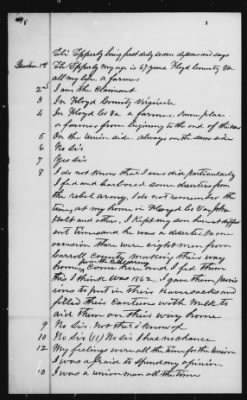 Eli Epperly being first duly sworn deposes and says
Question 1st Eli Epperly my age is 67 years Floyd County Va
all my life. a farmer
2nd I am the Claimant
3 In Floyd County Virginia
4 In Floyd Co Va a farmer. same place
a farmer from beginning to the end of the war
5 On the Union side. always on the same side
6 No Sir
7 Yes Sir
8 I do not know that I ever did particularly
I fed and harbored some deserters from
the rebel army, I do not remember the
times, at my home in Floyd Co Va, John
and others, I kept my son hid at differ
ent times and he was a deserter. On one
occasion there were eight men from
Carroll County making their way
home from the rebel army Came here and I fed them
this I think was 1862. I gave them provis
ions to put in their haversacks and
filled their canteens with milk to
aid them on their way home
9 No Sir. Not that I know of
10 No Sir (11) No Sir I had no chance
12 My feelings were all the time for the Union
I was afraid to spend my opinion
13 I was a union man all the time